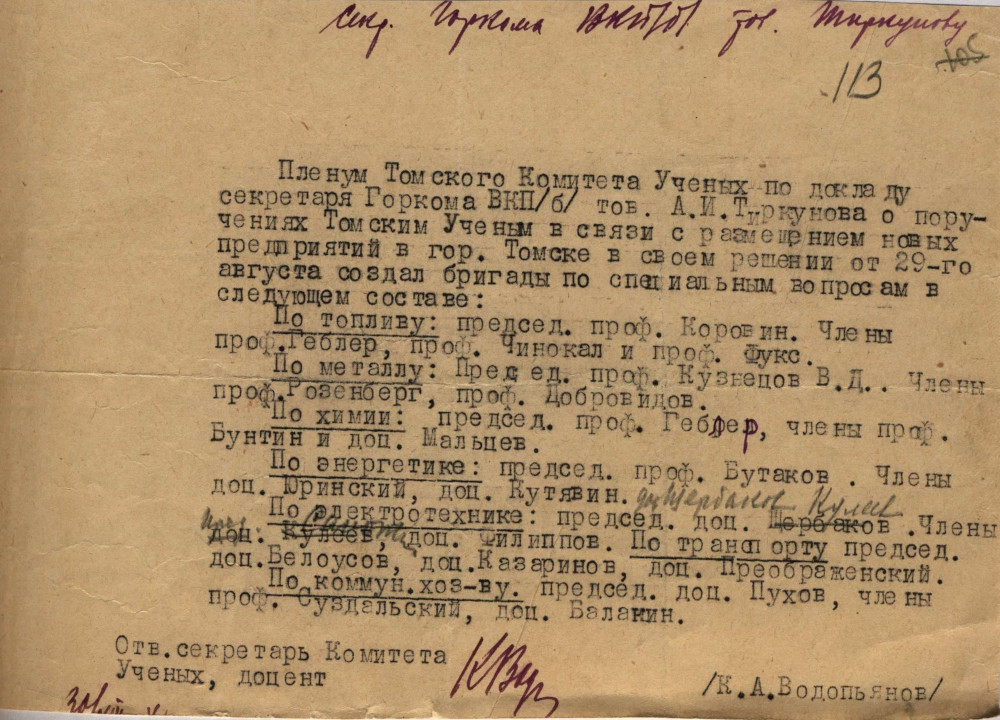 секр. Горкома ВКП/б/ тов. Тиркунову
113
Пленум Томского Комитета Ученых по докладу
секретаря Горкома ВКП/б/ тов. А.И.Тиркунова о пору-
чениях Томским Ученым в связи с размещением новых
предприятий в гор. Томске в своем решении от 29-го
августа создал бригады по специальным вопросам в
следующем составе:
По топливу: председ. проф. Коровин. Члены
проф.Геблер, проф. Чинокал и проф. Фукс.
По металлу: Председ. проф. Кузнецов В.Д.. Члены
проф.Розенберг, проф. Добровидов.
По химии: председ. проф. Геблер, члены проф.
Бунтин и доц. Мальцев.
По энергетике: председ. проф. Бутаков . Члены
доц. Юринский, доц. Кутявин. Щербаков Кулев
По электротехнике: председ. доц. Щербаков .Члены
доц. Кулеев, доц. Филиппов. По транспорту председ.
доц.Белоусов, доц.Казаринов, доц. Преображенский.
По коммун.хоз-ву. председ. доц. Пухов, члены
проф. Суздальский, доц. Балакин.
Отв.секретарь Комитета
Ученых, доцент
/К.А.Водопьянов/